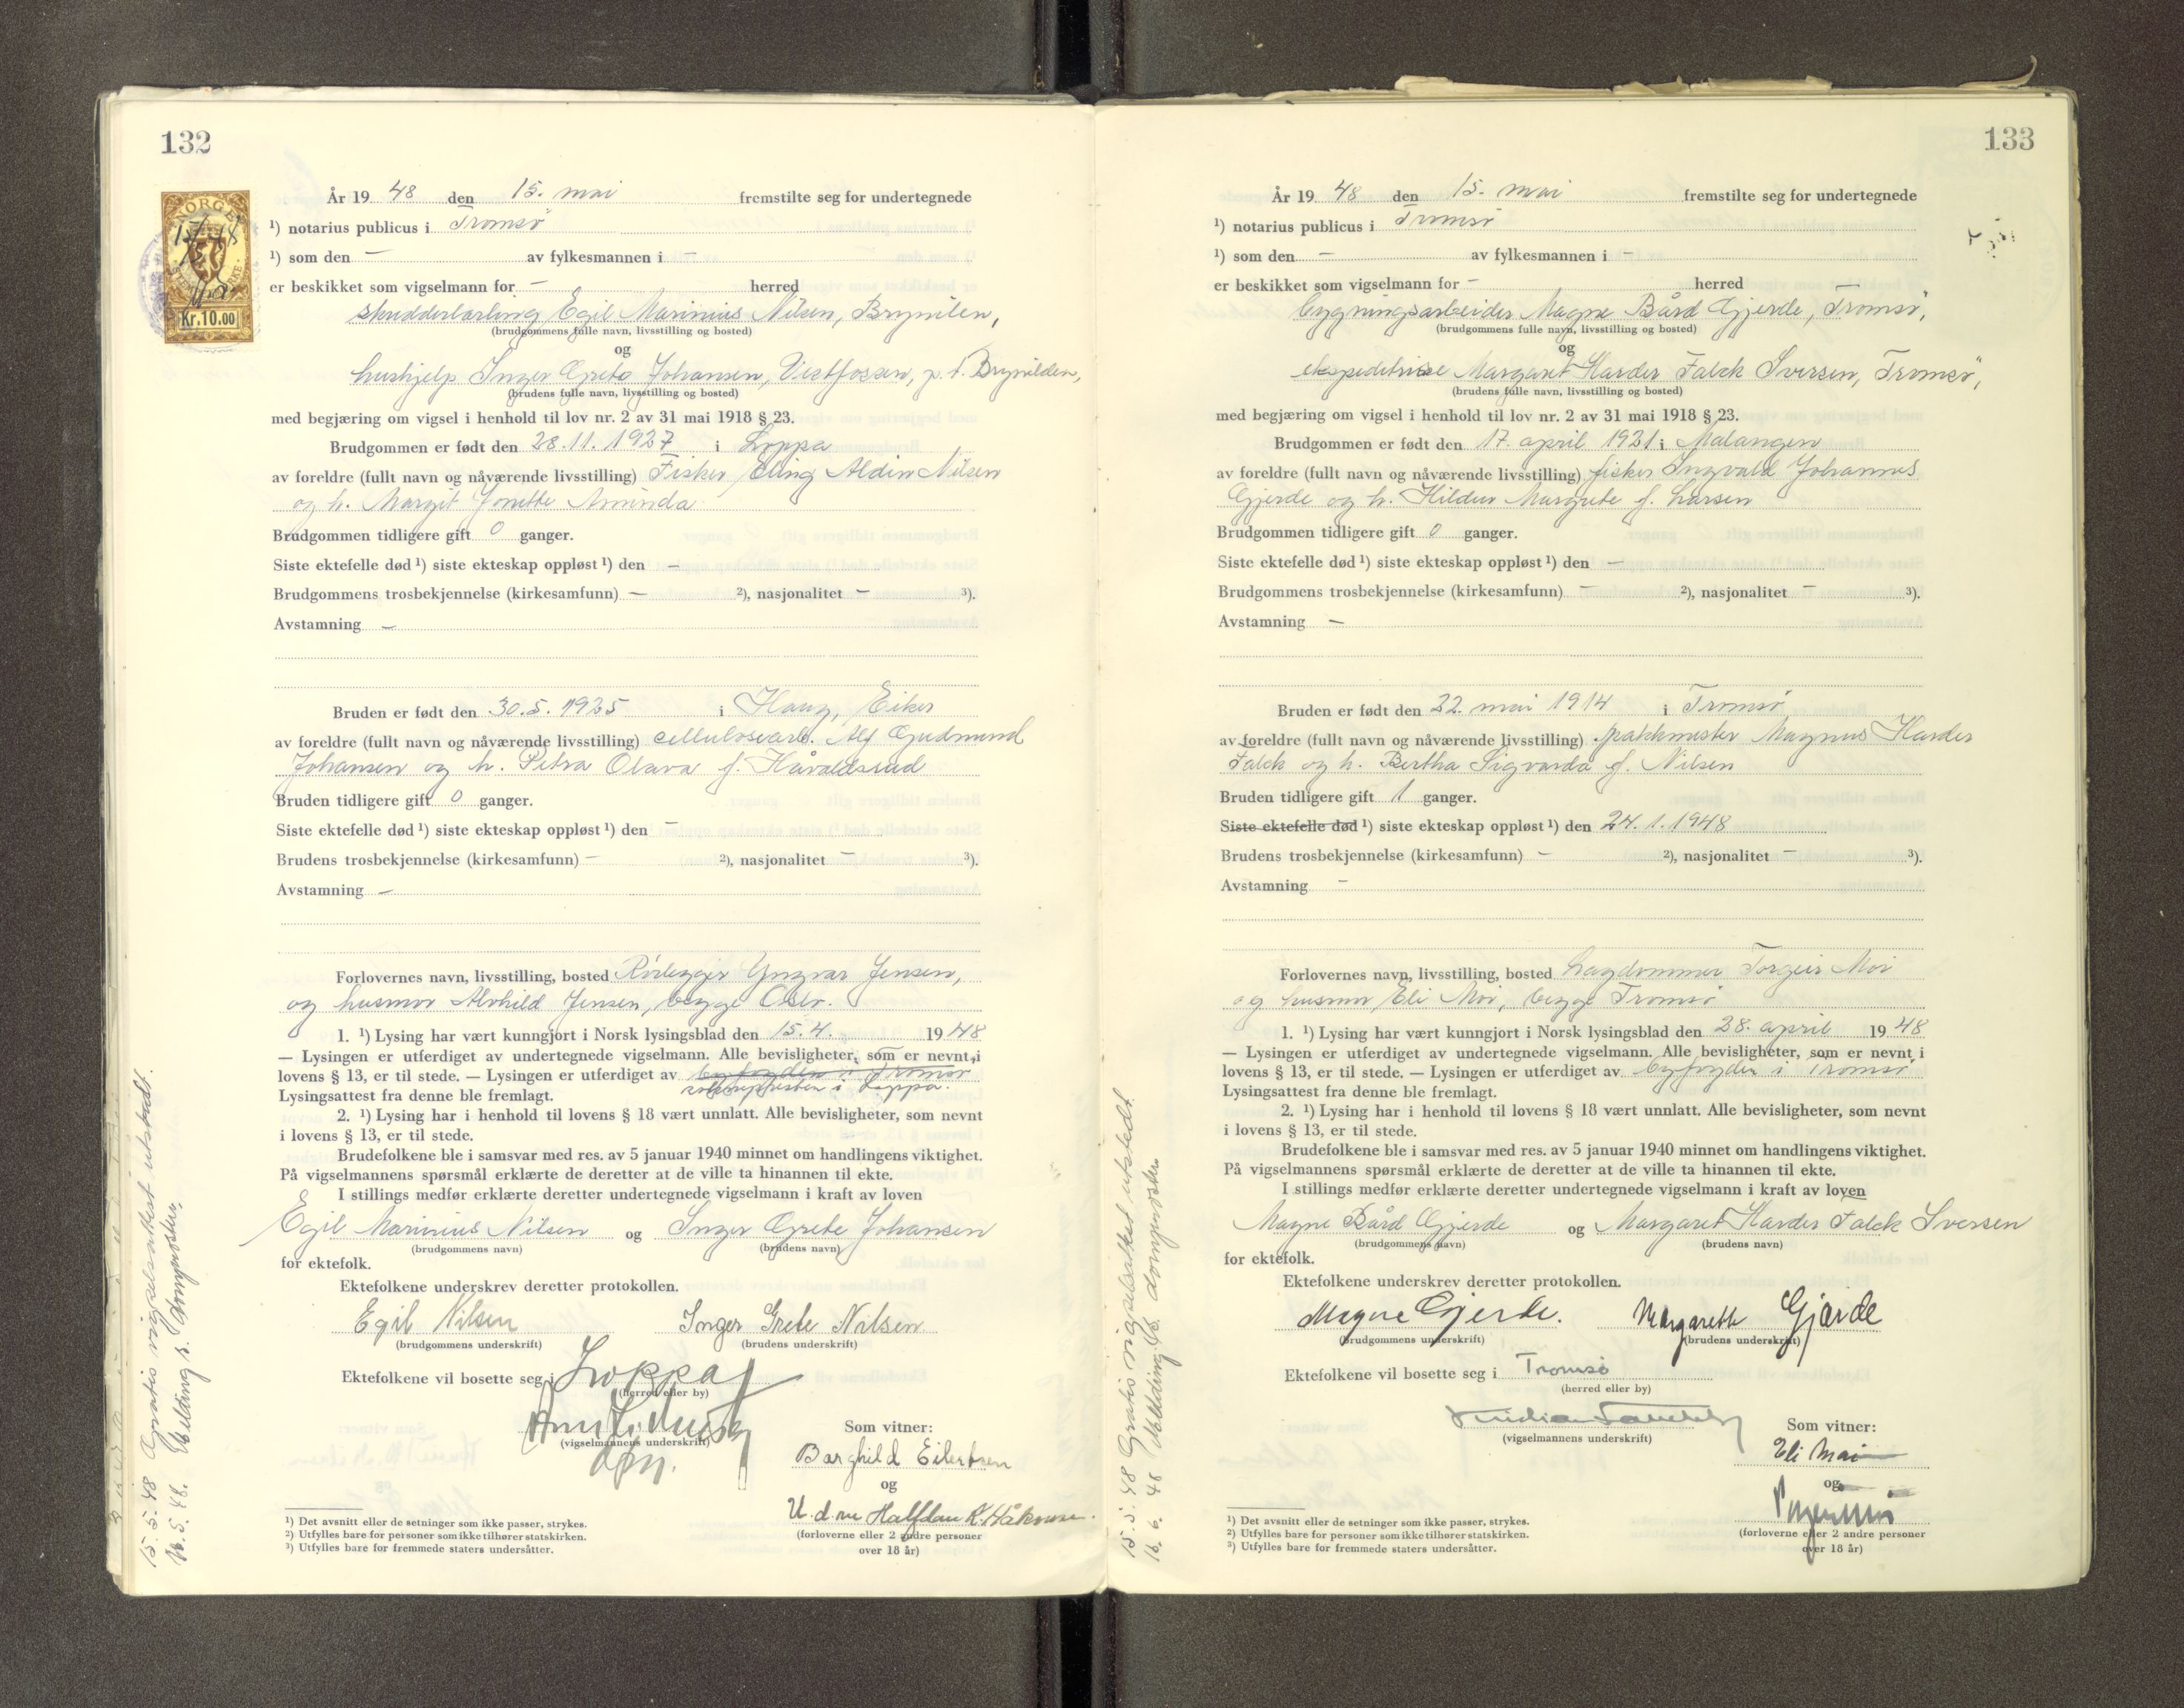 132
NORGE
Kr.10.00
År 19 48 den 15. mai fremstilte seg for undertegnede
¹) notarius publicus i Tromsø
¹) som den — av fylkesmannen i —
er beskikket som vigselmann for — herred
skredderlærling Egil Marinius Nilsen, Brynilen,
(brudgommens fulle navn, livsstilling og bosted)
og
hushjelp Inger Grete Johansen, Vestfossen, p.t. Brynilden,
(brudens fulle navn, livsstilling og bosted)
med begjæring om vigsel i henhold til lov nr. 2 av 31 mai 1918 § 23.
Brudgommen er født den 28.11.1927 i Loppa
av foreldre (fullt navn og nåværende livsstilling) Fisker Aldin Nilsen
og h. Margit Jonette Aminda
Brudgommen tidligere gift 0 ganger.
Siste ektefelle død ¹) siste ekteskap oppløst ¹) den —
Brudgommens trosbekjennelse (kirkesamfunn) — ²), nasjonalitet — ³).
Avstamning —
Bruden er født den 30.5.1925 i Haug, Eiker
av foreldre (fullt navn og nåværende livsstilling) cellulosearb. Alf Gudmund
Johansen og h. Petra Olava f. Håvaldsrud
Bruden tidligere gift 0 ganger.
Siste ektefelle død ¹) siste ekteskap oppløst ¹) den —
Brudens trosbekjennelse (kirkesamfunn) — ²), nasjonalitet — ³).
Avstamning —
Forlovernes navn, livsstilling, bosted Rørlegger Yngvar Jensen,
og husmor Alvhild Jensen, begge Oslo.
1. ¹) Lysing har vært kunngjort i Norsk lysingsblad den 15.4. 1948
— Lysingen er utferdiget av undertegnede vigselmann. Alle bevisligheter, som er nevnt i
lovens § 13, er til stede. — Lysingen er utferdiget av byfogden i Tromsø
soknepresten i Loppa.
Lysingsattest fra denne ble fremlagt.
2. ¹) Lysing har i henhold til lovens § 18 vært unnlatt. Alle bevisligheter, som nevnt
i lovens § 13, er til stede.
Brudefolkene ble i samsvar med res. av 5 januar 1940 minnet om handlingens viktighet.
På vigselmannens spørsmål erklærte de deretter at de ville ta hinannen til ekte.
I stillings medfør erklærte deretter undertegnede vigselmann i kraft av loven
Egil Marinius Nilsen og Inger Grete Johansen
(brudgommens navn) (brudens navn)
for ektefolk.
Ektefolkene underskrev deretter protokollen.
Egil Nilsen Inger Grete Nilsen
(brudgommens underskrift) (brudens underskrift)
Ektefolkene vil bosette seg i Loppa
(herred eller by)
(vigselmannens underskrift)
Som vitner:
Borghild Eilertsen
og
Halfdan K. Håkonsen.
(forloverne eller 2 andre personer
over 18 år)
¹) Det avsnitt eller de setninger som ikke passer, strykes.
²) Utfylles bare for personer som ikke tilhører statskirken.
³) Utfylles bare for fremmede staters undersåtter.
15.5.48 Gratis vigselsattest utstedt.
Melding s. domprosten.
133
År 19 48 den 15. mai fremstilte seg for undertegnede
¹) notarius publicus i Tromsø
¹) som den — av fylkesmannen i —
er beskikket som vigselmann for — herred
bygningsarbeider Magne Bård Gjerde, Tromsø,
(brudgommens fulle navn, livsstilling og bosted)
og
ekspeditrise Margaret Harder Falck Iversen, Tromsø,
(brudens fulle navn, livsstilling og bosted)
med begjæring om vigsel i henhold til lov nr. 2 av 31 mai 1918 § 23.
Brudgommen er født den 17. april 1921 i Malangen
av foreldre (fullt navn og nåværende livsstilling) fisker Ingvald Johannes
Gjerde og h. Hildur Margrete f. Larsen
Brudgommen tidligere gift 0 ganger.
Siste ektefelle død ¹) siste ekteskap oppløst ¹) den —
Brudgommens trosbekjennelse (kirkesamfunn) — ²), nasjonalitet — ³).
Avstamning —
Bruden er født den 22. mai 1914 i Tromsø
av foreldre (fullt navn og nåværende livsstilling) pakkmester Magnus Harder
Falck og h. Bertha Sigvarda f. Nilsen
Bruden tidligere gift 1 ganger.
Siste ektefelle død ¹) siste ekteskap oppløst ¹) den 24.1.1948
Brudens trosbekjennelse (kirkesamfunn) — ²), nasjonalitet — ³).
Avstamning —
Forlovernes navn, livsstilling, bosted Lagdommer Torgeir Moi
og husmor Eli Moi, begge Tromsø
1. ¹) Lysing har vært kunngjort i Norsk lysingsblad den 28. april 1948
— Lysingen er utferdiget av undertegnede vigselmann. Alle bevisligheter, som er nevnt i
lovens § 13, er til stede. — Lysingen er utferdiget av byfogden i Tromsø
Lysingsattest fra denne ble fremlagt.
2. ¹) Lysing har i henhold til lovens § 18 vært unnlatt. Alle bevisligheter, som nevnt
i lovens § 13, er til stede.
Brudefolkene ble i samsvar med res. av 5 januar 1940 minnet om handlingens viktighet.
På vigselmannens spørsmål erklærte de deretter at de ville ta hinannen til ekte.
I stillings medfør erklærte deretter undertegnede vigselmann i kraft av loven
Magne Bård Gjerde og Margaret Harder Falck Iversen
(brudgommens navn) (brudens navn)
for ektefolk.
Ektefolkene underskrev deretter protokollen.
Magne Gjerde. Margarethe Gjærde
(brudgommens underskrift) (brudens underskrift)
Ektefolkene vil bosette seg i Tromsø
(herred eller by)
(vigselmannens underskrift)
Som vitner:
Eli Moi
og
(forloverne eller 2 andre personer
over 18 år)
¹) Det avsnitt eller de setninger som ikke passer, strykes.
²) Utfylles bare for personer som ikke tilhører statskirken.
³) Utfylles bare for fremmede staters undersåtter.
15.5.48 Gratis vigselsattest utstedt.
Melding s. domprosten